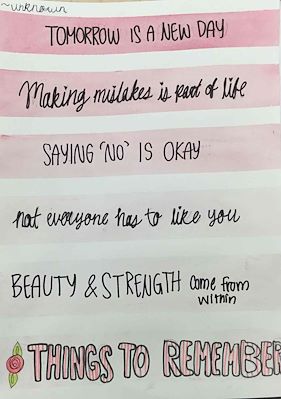 ~unknown
TOMORROW IS A NEW DAY
Making mistakes is part of life
SAYING 'NO' IS OKAY
not everyone has to like you
BEAUTY & STRENGTH come from
within
THINGS TO REMEMBER